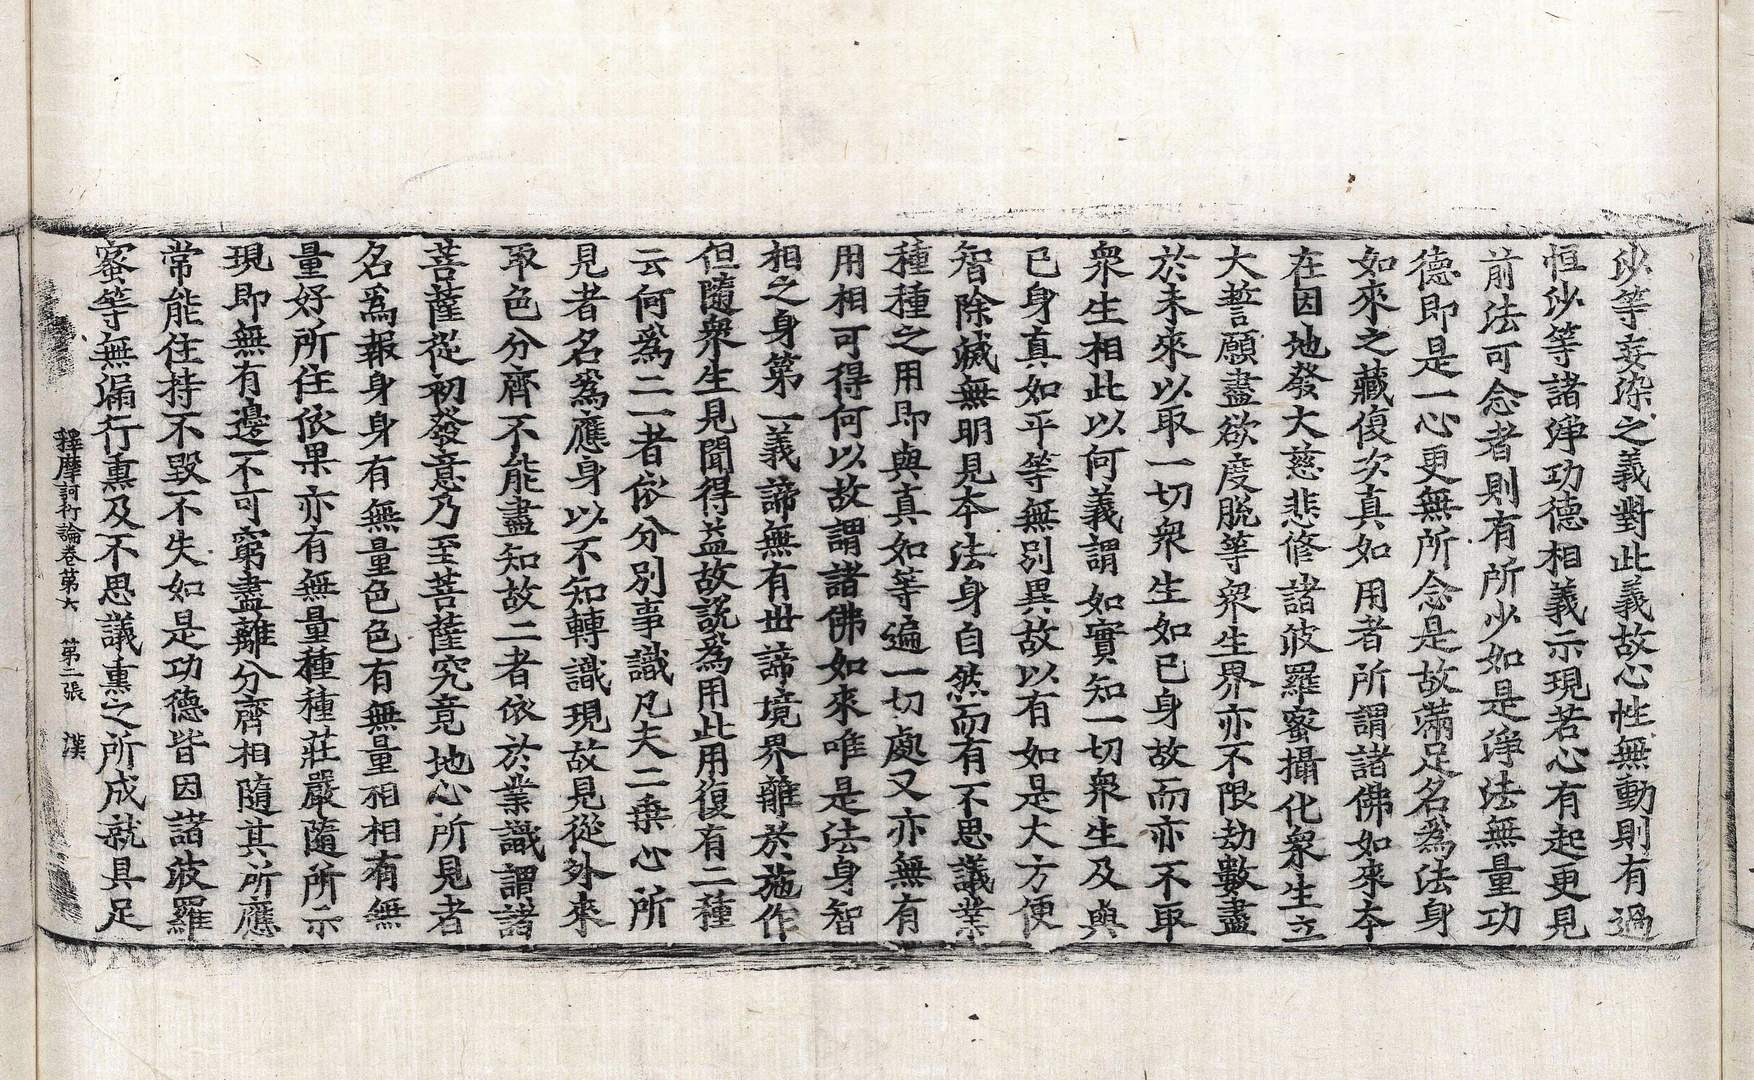 沙等妄染之義對此義故心性無動則有過
恒沙等諸淨功德相義示現若心有起更見
前法可念者則有所少如是淨法無量功
德即是一心更無所念是故滿足名爲法身
如來之藏復次真如用者所謂諸佛如來本
在因地發大慈悲修諸波羅蜜攝化衆生立
大誓願盡欲度脫等衆生界亦不限劫數盡
於未來以取一切衆生如己身故而亦不取
衆生相此以何義謂如實知一切衆生及與
已身真如平等無別異故以有如是大方便
智除滅無明見本法身自然而有不思議業
種種之用即與真如等遍一切處又亦無有
用相可得何以故謂諸佛如來唯是法身智
相之身第一義諦無有世諦境界離於施作
但隨衆生見聞得益故說爲用此用復有二種
云何爲二一者依分別事識凡夫二乗心所
見者名爲應身以不知轉識現故見從外來
取色分齊不能盡知故二者依於業識謂諸
菩薩從初發意乃至菩薩究竟地心所見者
名爲報身身有無量色色有無量相相有無
量好所住依果亦有無量種種莊嚴隨所示
現即無有邊不可窮盡離分齊相隨其所應
常能住持不毀不失如是功德皆因諸波羅
蜜等無漏行熏及不思議熏之所成就具足
釋摩訶衍論卷第六 第二張 漢